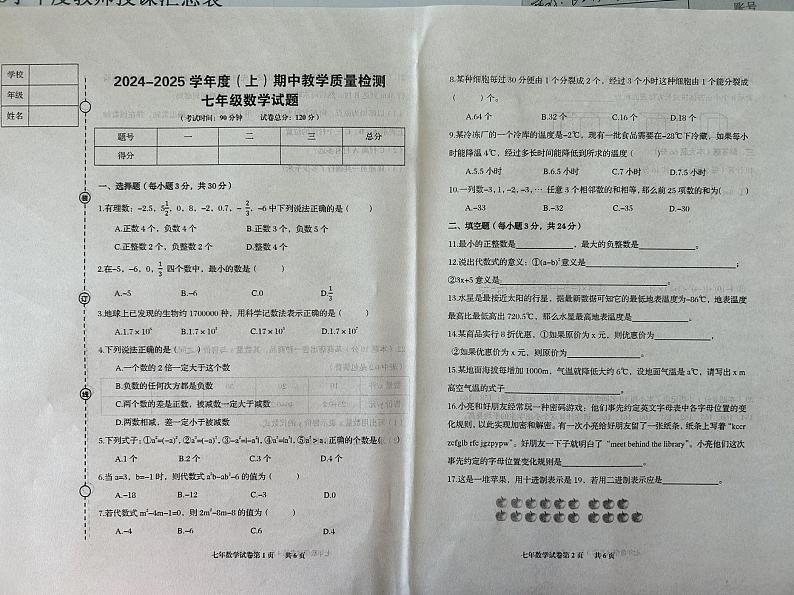 学校
年级
姓名
2024-2025 学年度（上）期中教学质量检测
七年级数学试题
（考试时间：90 分钟 试卷总分：120 分）
题号 一 二 三 总分
得分
一、选择题（每小题 3 分，共 30 分）
1.有理数：-2.5，5 1/2，0，8，-2，0.7，- 2/3，-6 中下列说法正确的是（ ）
A.正数 4 个，负数 4 个 B.正数 3 个，负数 5 个
C.正整数 2 个，负整数 2 个 D.整数 4 个
2.在-5，-6，0，1/3 四个数中，最小的数是（ ）
A.-5 B.-6 C.0 D.1/3
3.地球上已发现的生物约 1700000 种，用科学记数法表示正确的是（ ）
4.下列说法正确的是（ ）
A.一个数的 2 倍一定大于这个数
B.负数的任何次方都是负数
C.两个数的差是正数，被减数一定大于减数
D.两数相减，差一定小于被减数
5.下列式子：
正确的个数是( )
A.1 个 B.2 个 C.3 个 D.4 个
6.当 a=3，b=-1 时，则代数式 a²b-ab²-6 的值是（ ）
A.-18 B.-12 C.-3 D.0
7.若代数式 m²-4m-1=0，则 2m²-8m-8 的值为（ ）
A.-4 B.-6 C.6 D.4
七年数学试卷第 1 页 共 6 页
8.某种细胞每过 30 分便由 1 个分裂成 2 个，经过 3 个小时这种细胞由 1 个能分裂成
（ ）个。
A.64 个 B.32 个 C.16 个 D.18 个
9.某冷冻厂的一个冷库的温度是-2℃，现有一批食品需要在-28℃下冷藏，如果每小
时能降温 4℃，经过多长时间能降低到所求的温度（ ）
A.5.5 小时 B.6.5 小时 C.7 小时 D.7.5 小时
10.一列数-3, 1, -2, -3, … 任意 3 个相邻数的和相等,那么前 25 项数的和为( )
A.-33 B.-32 C.-35 D.-30
二、填空题（每小题 3 分，共 24 分）
11.最小的正整数是 ，最大的负整数是 。
12.说出代数式的意义：①(a-b)²意义是 ；
②3x+5 意义是 。
13.水星是最接近太阳的行星，据最新数据可知它的最低地表温度为-86℃，地表温度
最高比最低高出 720.5℃，那么水星最高地表温度是 。
14.某商品实行 8 折优惠，①如果原价为 x 元，则优惠价为 ，
②如果优惠价为 x 元，则原价为 。
15.某地面海拔每增加 1000m，气温就降低大约 6℃，设地面气温是 a℃，请写出 x m
高空气温的式子 。
16.小亮和好朋友经常玩一种密码游戏：他们事先约定英文字母表中各字母位置的变
化规则，以此实现加密和解密。有一次小亮给好朋友留了一张纸条, 纸条上写着 “kccr
zcfglb rfc jgzpypw”。好朋友一下子就明白了 “meet behind the library”。小亮他们这次
事先约定的字母位置变化规则是 。
17.这是一堆苹果，用十进制表示是 19，若用二进制表示应是 。
七年数学试卷第 2 页 共 6 页